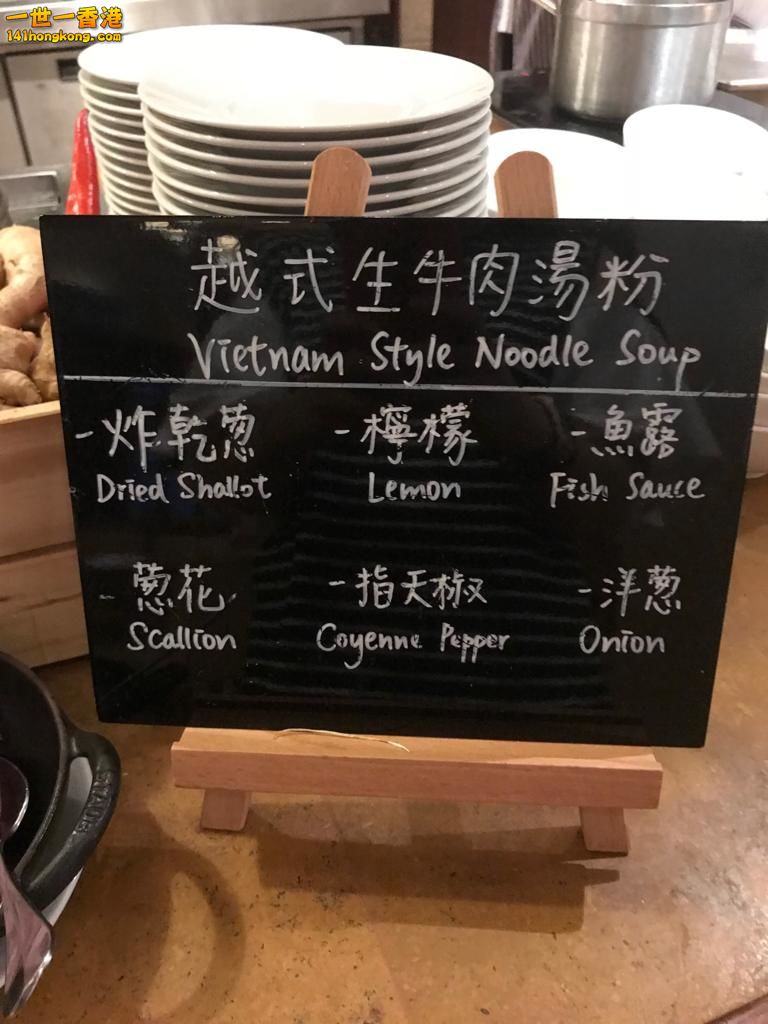 一世一香港
141hongkong.com
越式生牛肉湯粉
Vietnam Style Noodle Soup
-炸乾葱 -檸檬 -魚露
Dried Shallot Lemon Fish Sauce
-葱花 -指天椒 -洋葱
Scallion Coyenne Pepper Onion
STAUB